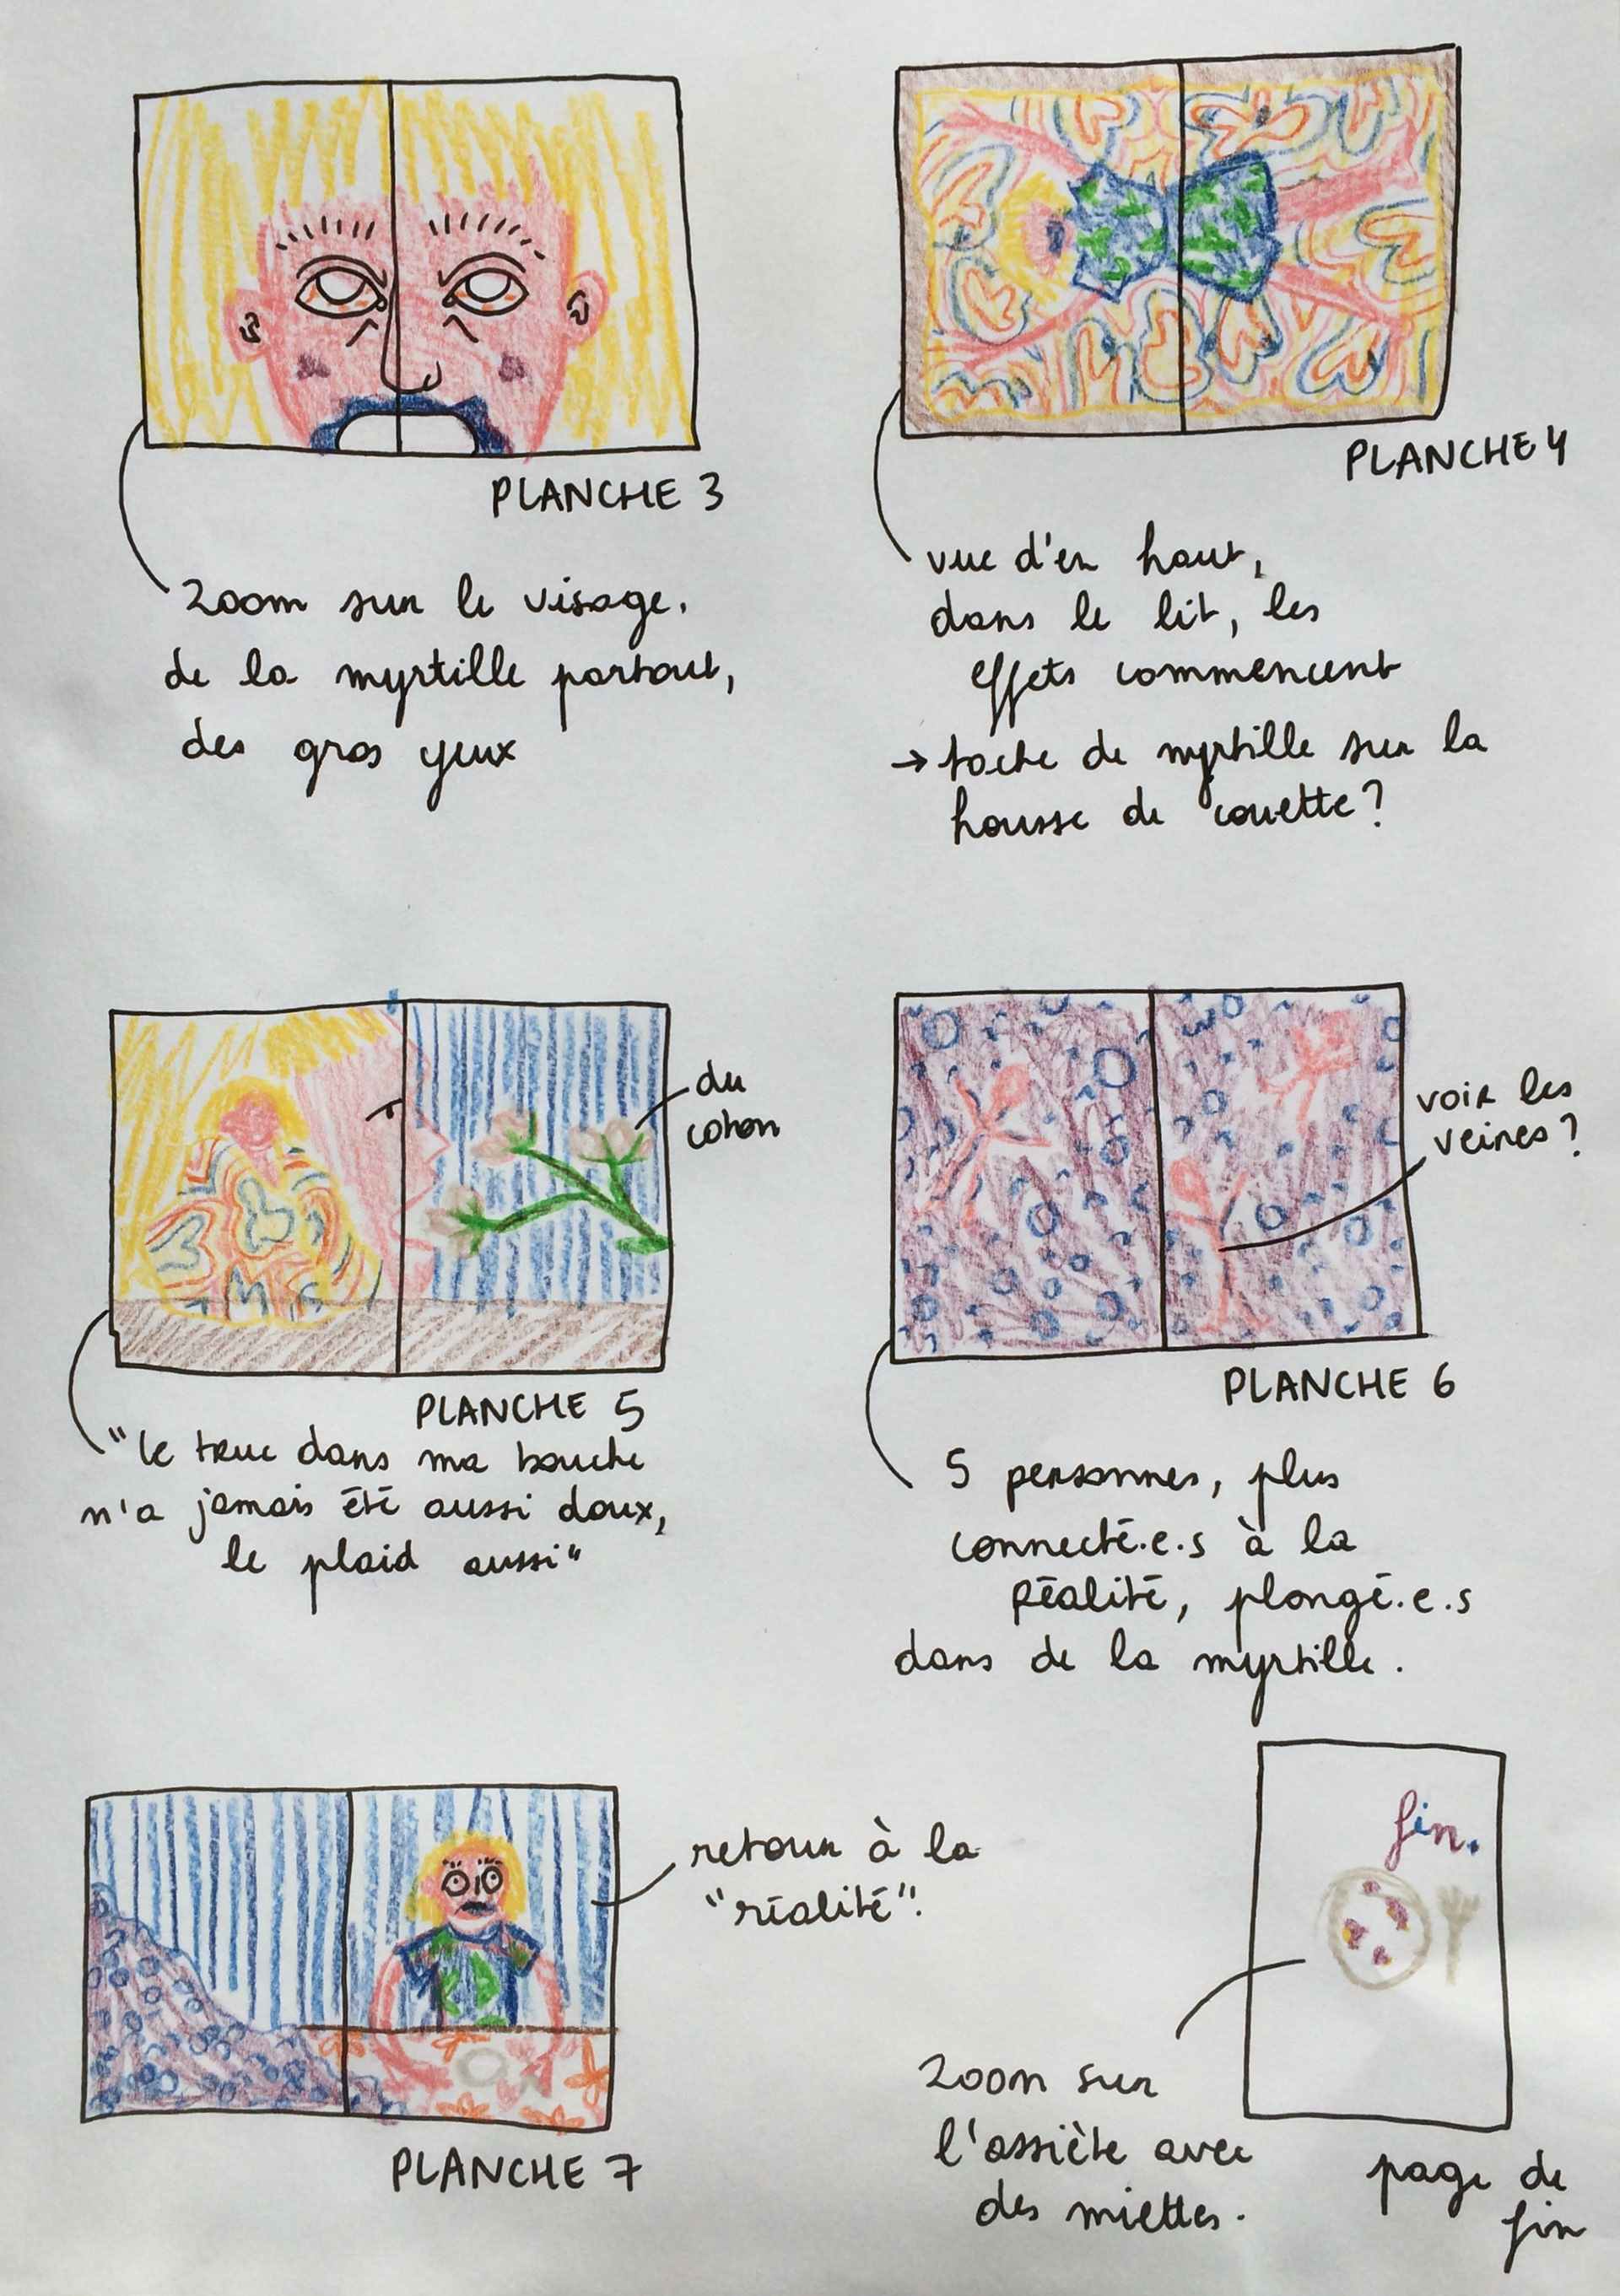 PLANCHE 3
zoom sur le visage.
de la myrtille partout,
des gros yeux
PLANCHE 4
vue d'en haut,
dans le lit, les
effets commencent
→ tache de myrtille sur la
housse de couette ?
du
coton
PLANCHE 5
"le truc dans ma bouche
n'a jamais été aussi doux,
le plaid aussi"
voir les
veines ?
PLANCHE 6
5 personnes, plus
connecté.e.s à la
réalité, plongé.e.s
dans de la myrtille.
retour à la
"réalité".
PLANCHE 7
fin.
zoom sur
l'assiète avec
des miettes.
page de
fin